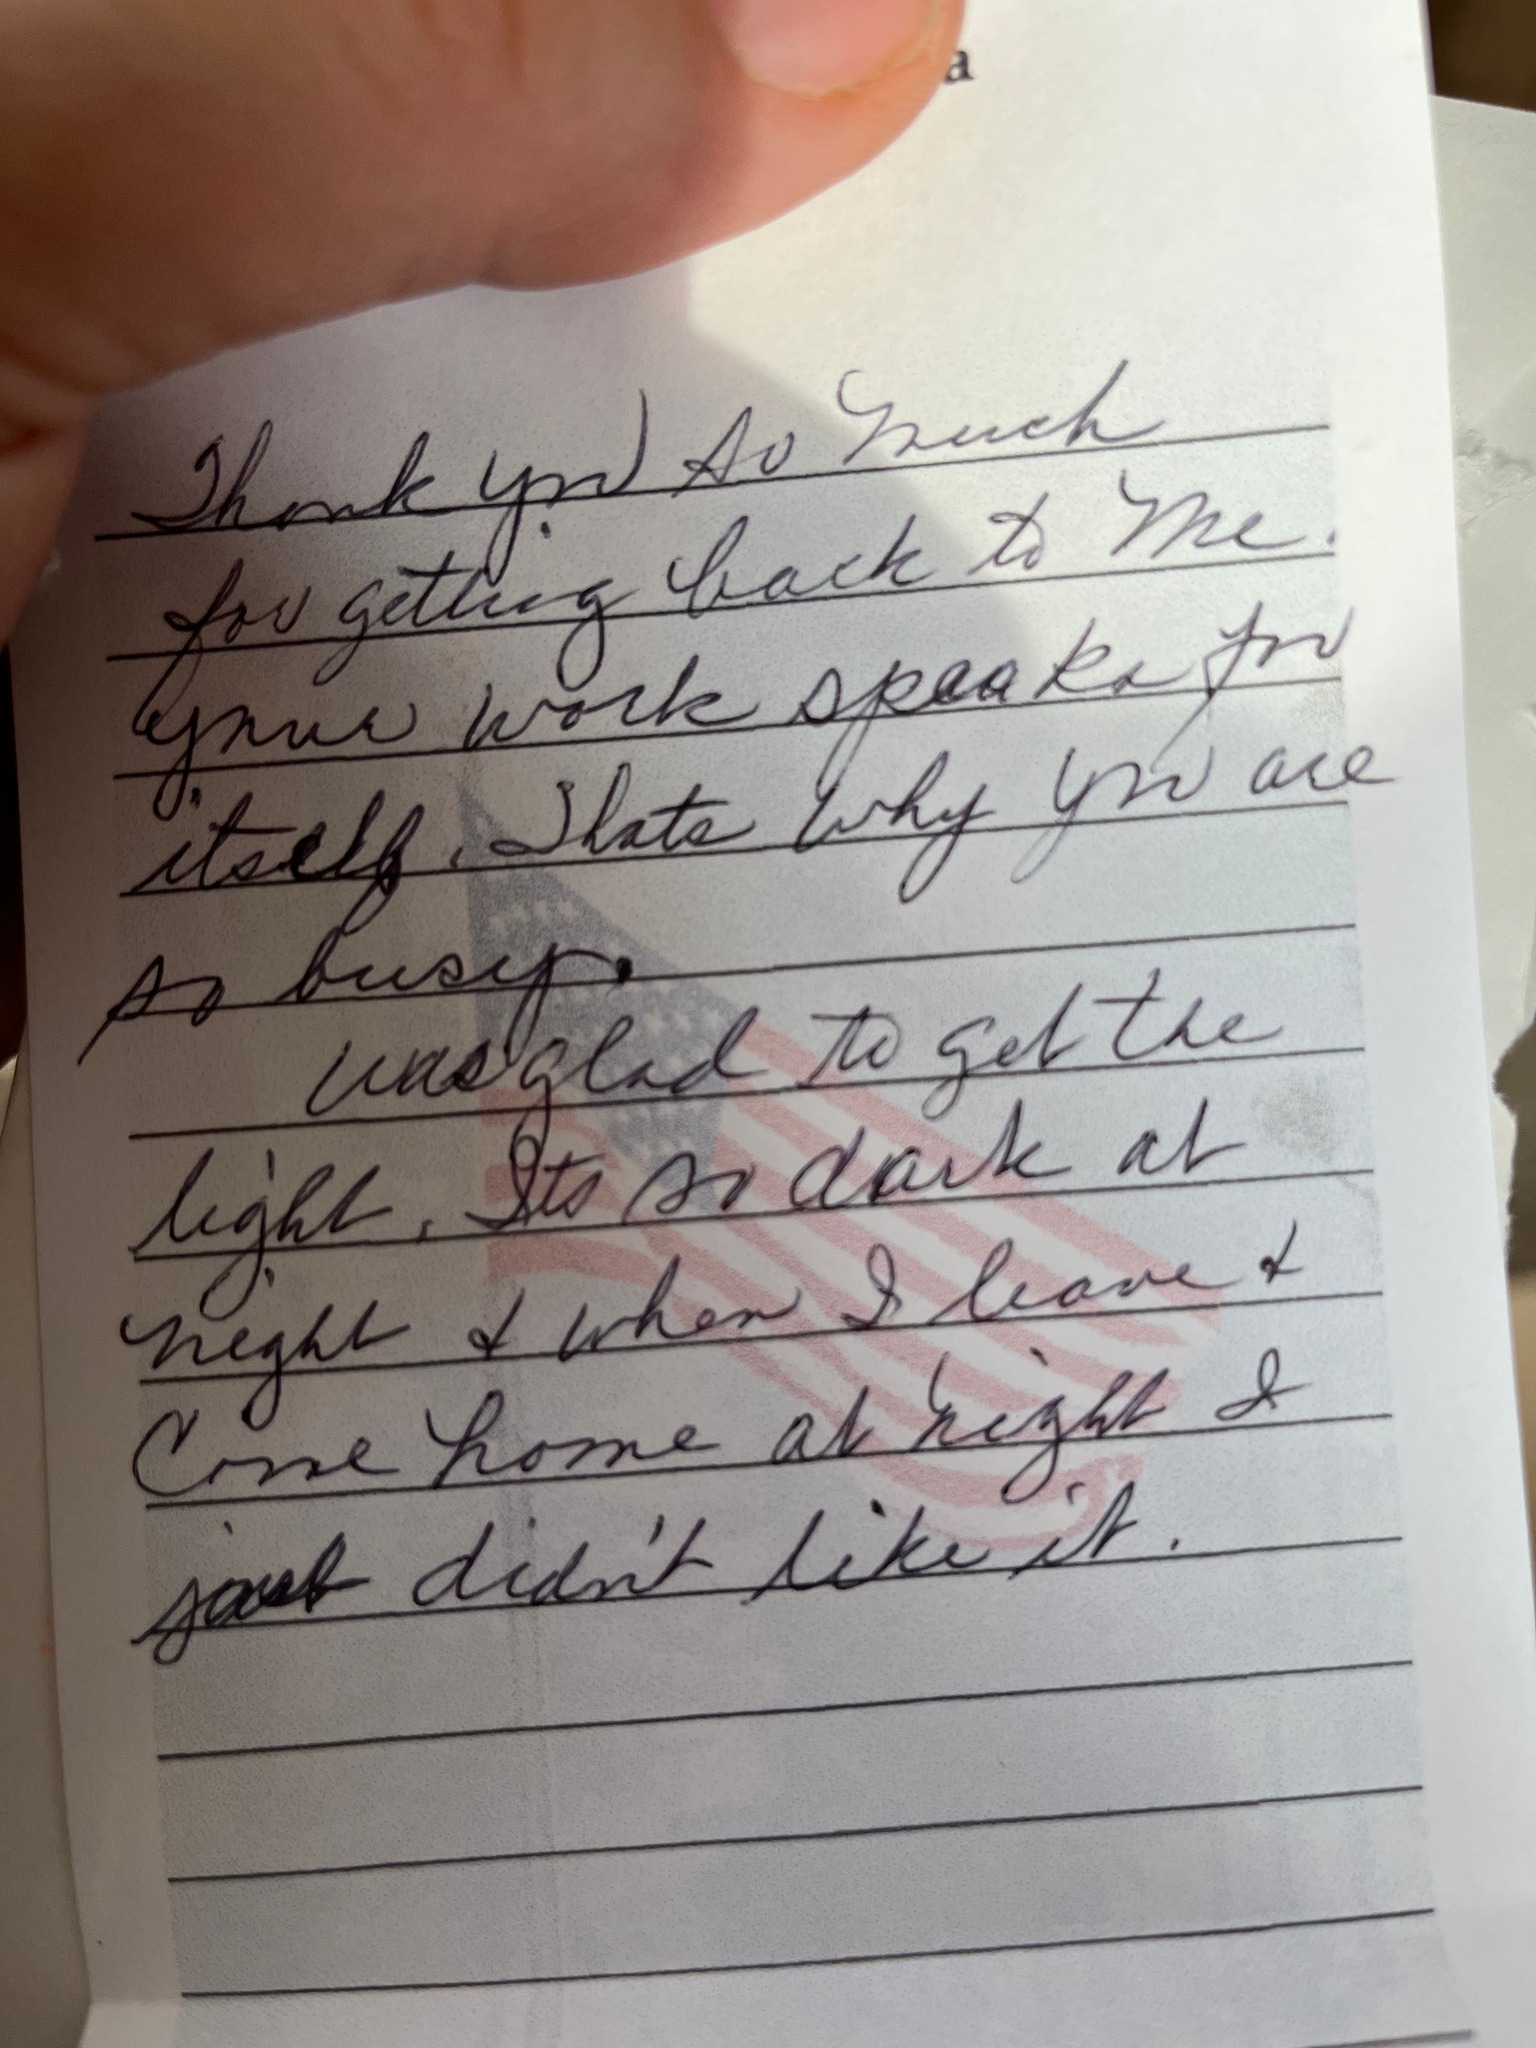 a
Thank you so much
for getting back to me.
your work speaks for
itself. Thats why you are
so busy.
was glad to get the
light. Its so dark at
night & when I leave &
Come home at night I
just didn't like it.